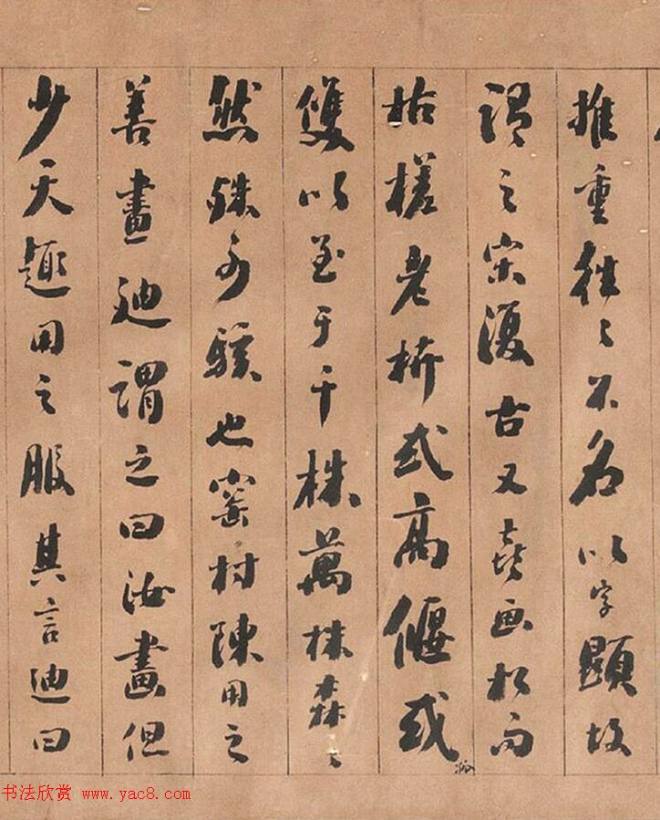 推重往〻不名以字顯故
謂之宋復古又喜画松而
枯槎老枿或高偃或
雙以至于千株萬株森〻
然殊可駭也小窑村陳用之
善畫迪謂之曰汝畫但
少天趣用之服其言迪曰
书法欣赏 www.yac8.com